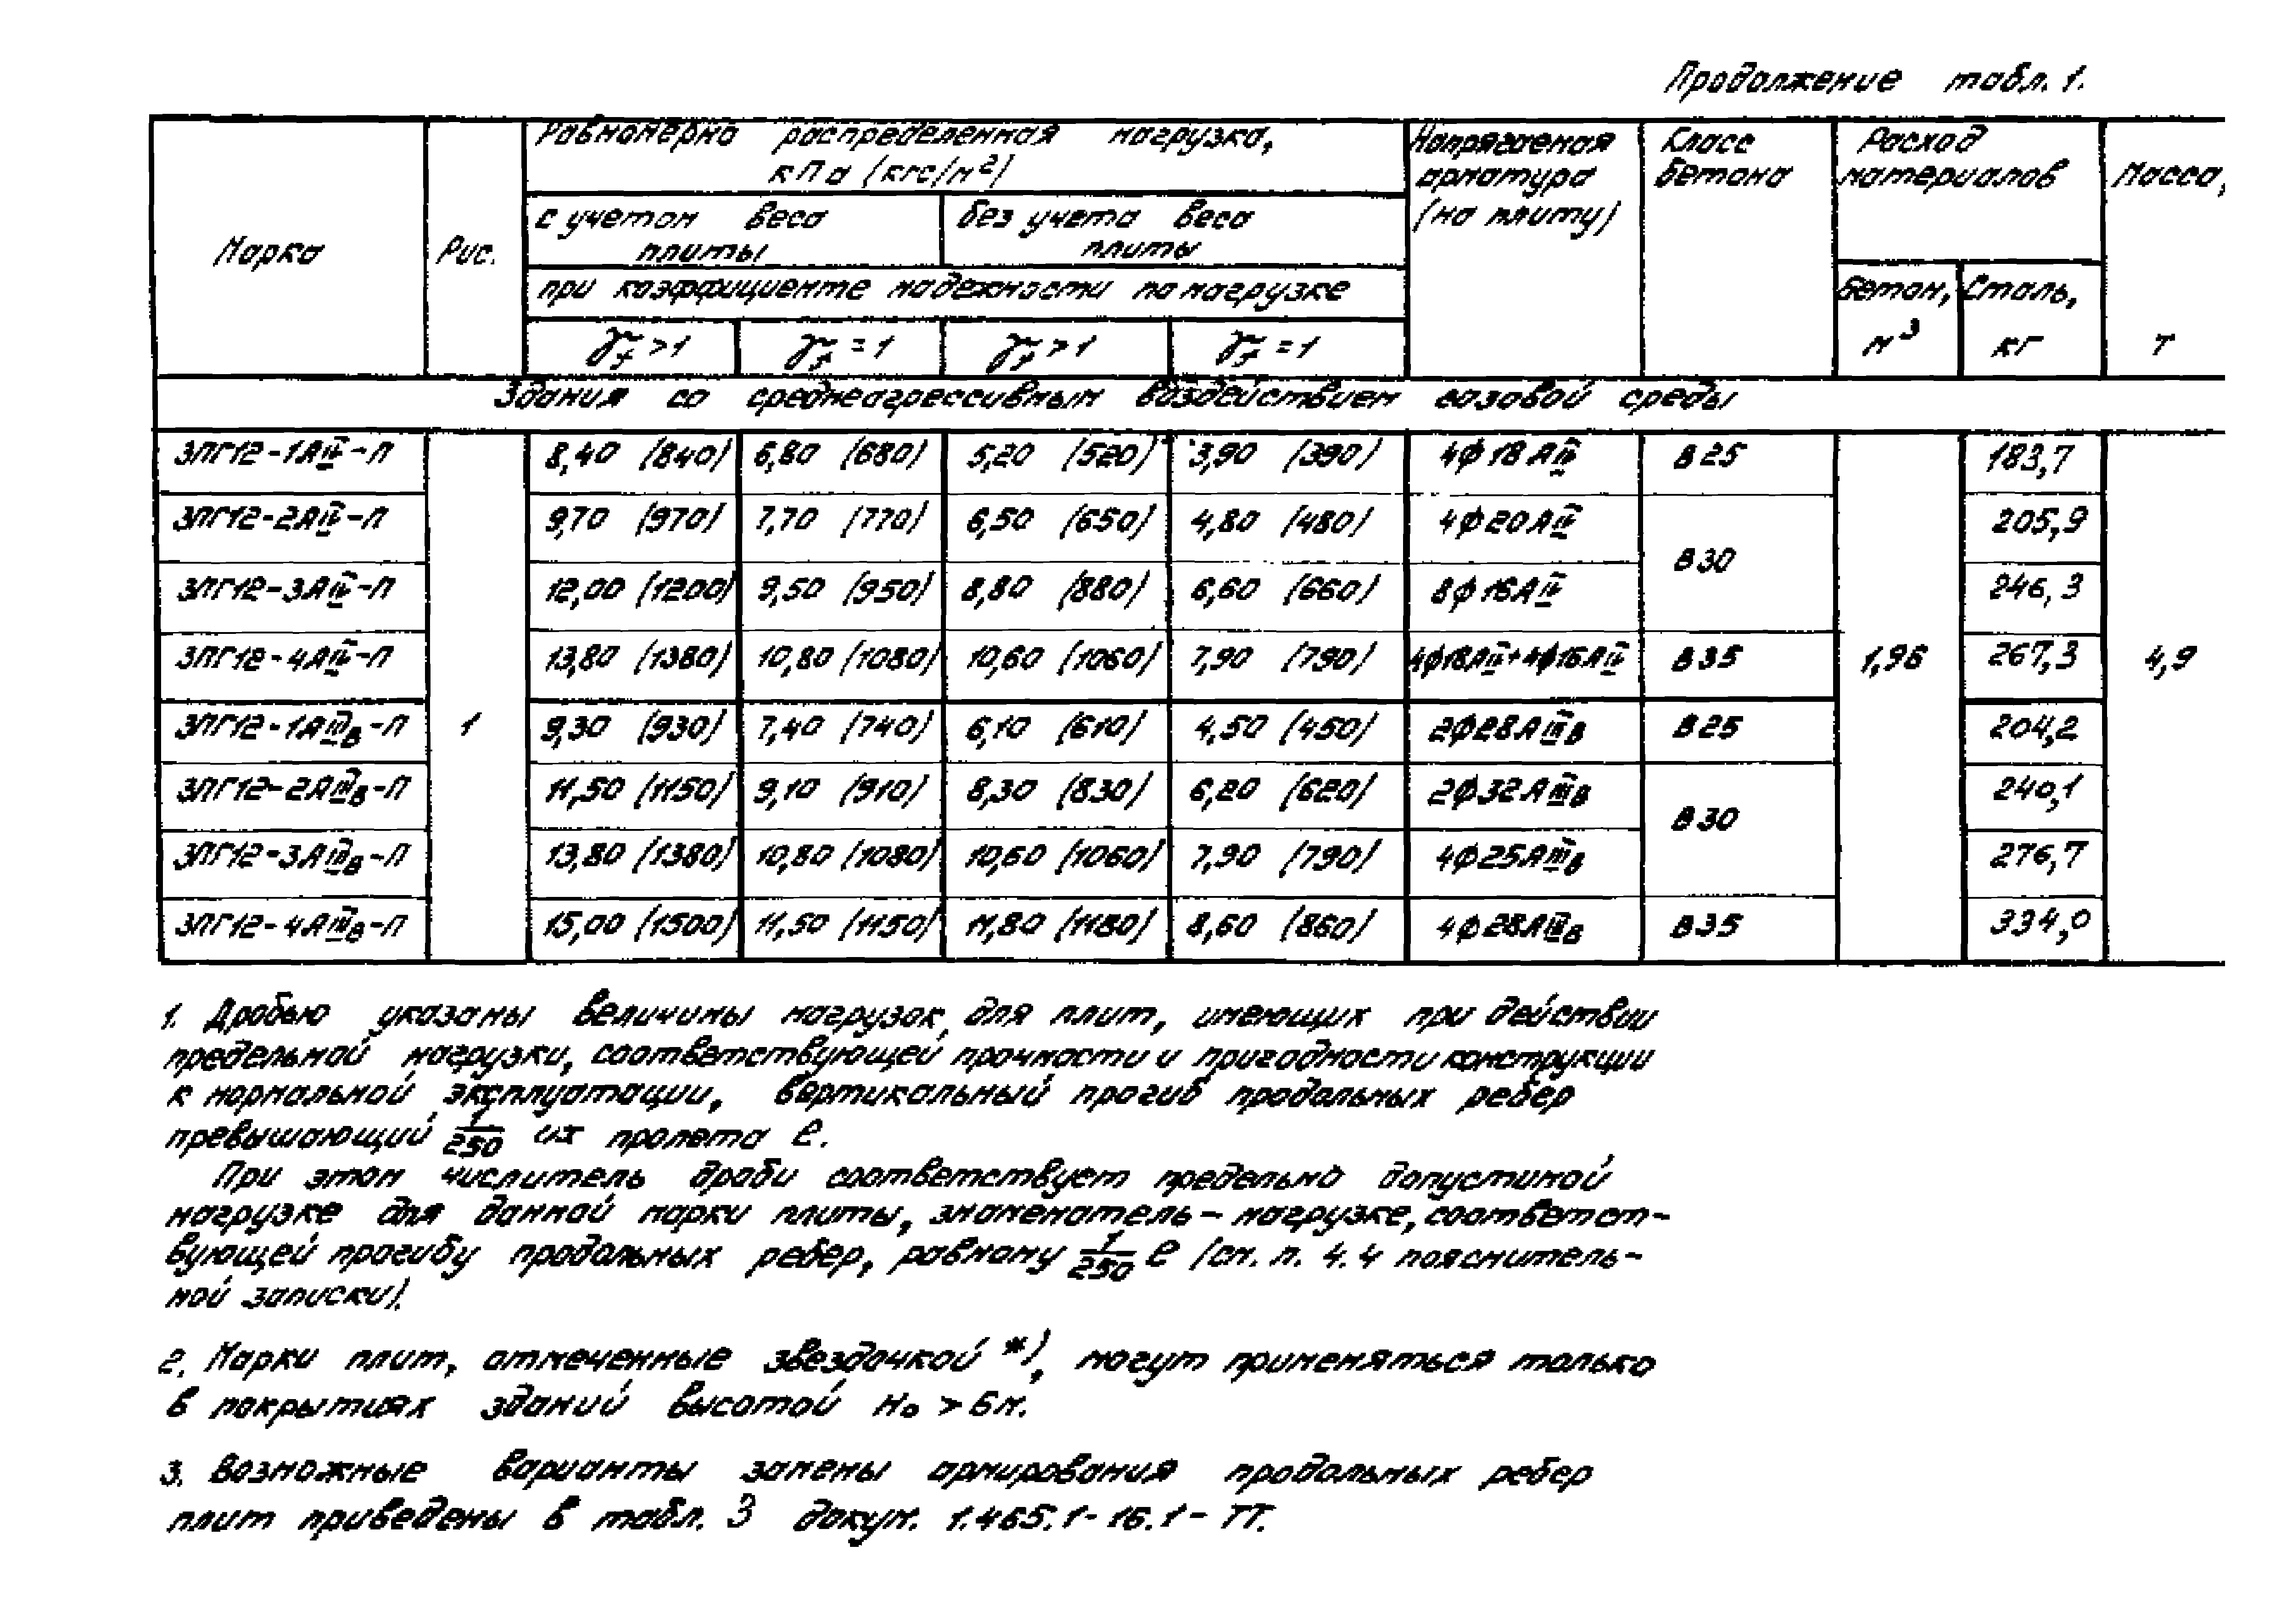 Продолжение табл. 1.
Марка
Рис.
Равномерно распределенная нагрузка,
кПа (кгс/м²)
с учетом веса
плиты
без учета веса
плиты
при коэффициенте надежности по нагрузке
γf > 1
γf = 1
γf > 1
γf = 1
Напрягаемая
арматура
(на плиту)
Класс
бетона
Расход
материалов
Бетон,
м³
Сталь,
кг
Масса,
т
Здания со среднеагрессивным воздействием газовой среды
3ПГ12-1АIV-П 8,40 (840) 6,80 (680) 5,20 (520) 3,90 (390) 4ф18АIV В25 183,7
3ПГ12-2АIV-П 9,70 (970) 7,70 (770) 6,50 (650) 4,80 (480) 4ф20АIV 205,9
В30
3ПГ12-3АIV-П 12,00 (1200) 9,50 (950) 8,80 (880) 6,60 (660) 8ф16АIV 246,3
3ПГ12-4АIV-П 13,80 (1380) 10,80 (1080) 10,60 (1060) 7,90 (790) 4ф18АIV+4ф16АIV В35 1,96 267,3 4,9
3ПГ12-1АIIIв-П 1 9,30 (930) 7,40 (740) 6,10 (610) 4,50 (450) 2ф28АIIIв В25 204,2
3ПГ12-2АIIIв-П 11,50 (1150) 9,10 (910) 8,30 (830) 6,20 (620) 2ф32АIIIв 240,1
В30
3ПГ12-3АIIIв-П 13,80 (1380) 10,80 (1080) 10,60 (1060) 7,90 (790) 4ф25АIIIв 276,7
3ПГ12-4АIIIв-П 15,00 (1500) 11,50 (1150) 11,80 (1180) 8,60 (860) 4ф28АIIIв В35 334,0
1. Дробью указаны величины нагрузок для плит, имеющих при действии
предельной нагрузки, соответствующей прочности и пригодности конструкции
к нормальной эксплуатации, вертикальный прогиб продольных ребер
превышающий 1/250 их пролета ℓ.
При этом числитель дроби соответствует предельно допустимой
нагрузке для данной марки плиты, знаменатель – нагрузке, соответст-
вующей прогибу продольных ребер, равному 1/250 ℓ (см. п. 4.4 пояснитель-
ной записки).
2. Марки плит, отмеченные звездочкой *), могут применяться только
в покрытиях зданий высотой Но > 6м.
3. Возможные варианты замены армирования продольных ребер
плит приведены в табл. 3 докум. 1.465.1-16.1-ТТ.